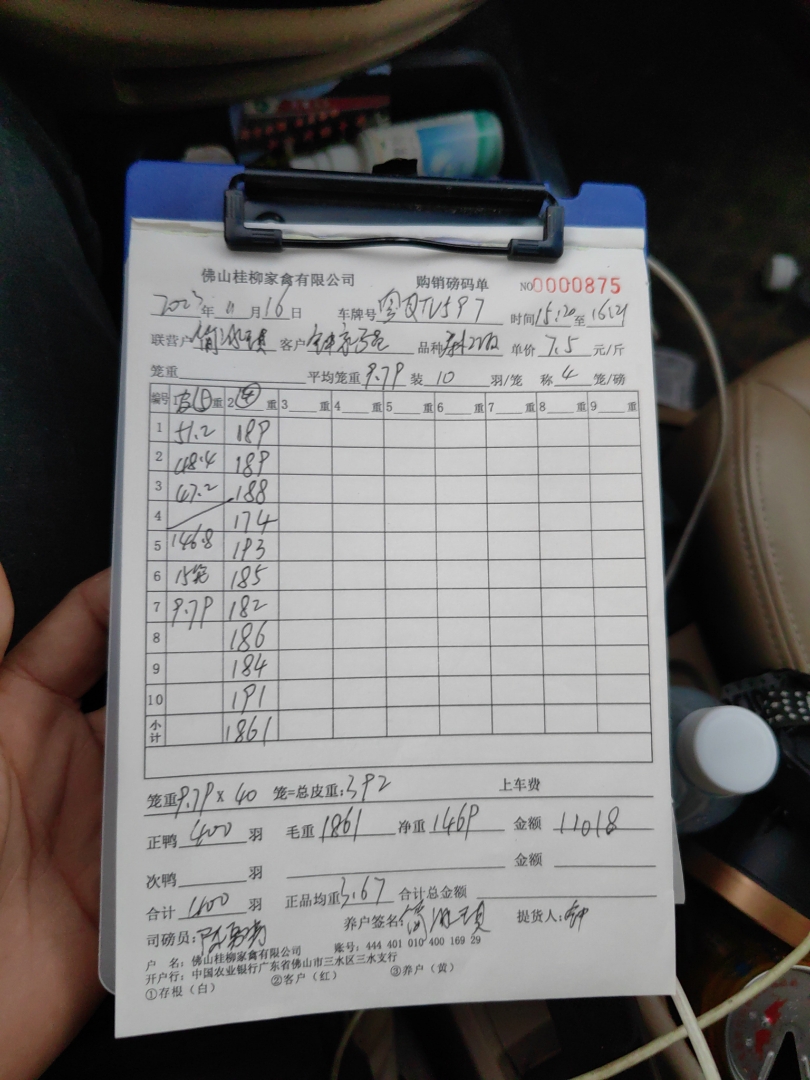 佛山桂柳家禽有限公司 购销磅码单 NO 0000875
2023年11月16日 车牌号 时间15:20至16:21
联营户 客户 品种 单价 7.5 元/斤
笼重 平均笼重 9.79 装 10 羽/笼 称 4 笼/磅
编号 1 皮⑤重 2 ④ 重 3 重 4 重 5 重 6 重 7 重 8 重 9 重
1 51.2 189
2 48.4 189
3 47.2 188
4 174
5 146.8 193
6 15笼 185
7 9.79 182
8 186
9 184
10 191
小计 1861
笼重 9.79 × 40 笼=总皮重: 392 上车费
正鸭 400 羽 毛重 1861 净重 1469 金额 11018
次鸭 羽 金额
合计 400 羽 正品均重 3.67 合计总金额
司磅员: 养户签名: 提货人: 钟
户 名: 佛山桂柳家禽有限公司 账号: 444 401 010 400 169 29
开户行: 中国农业银行广东省佛山市三水区三水支行
①存根（白） ②客户（红） ③养户（黄）